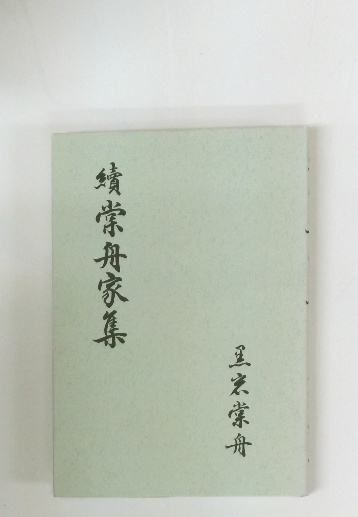 續棠舟家集
黒岩棠舟